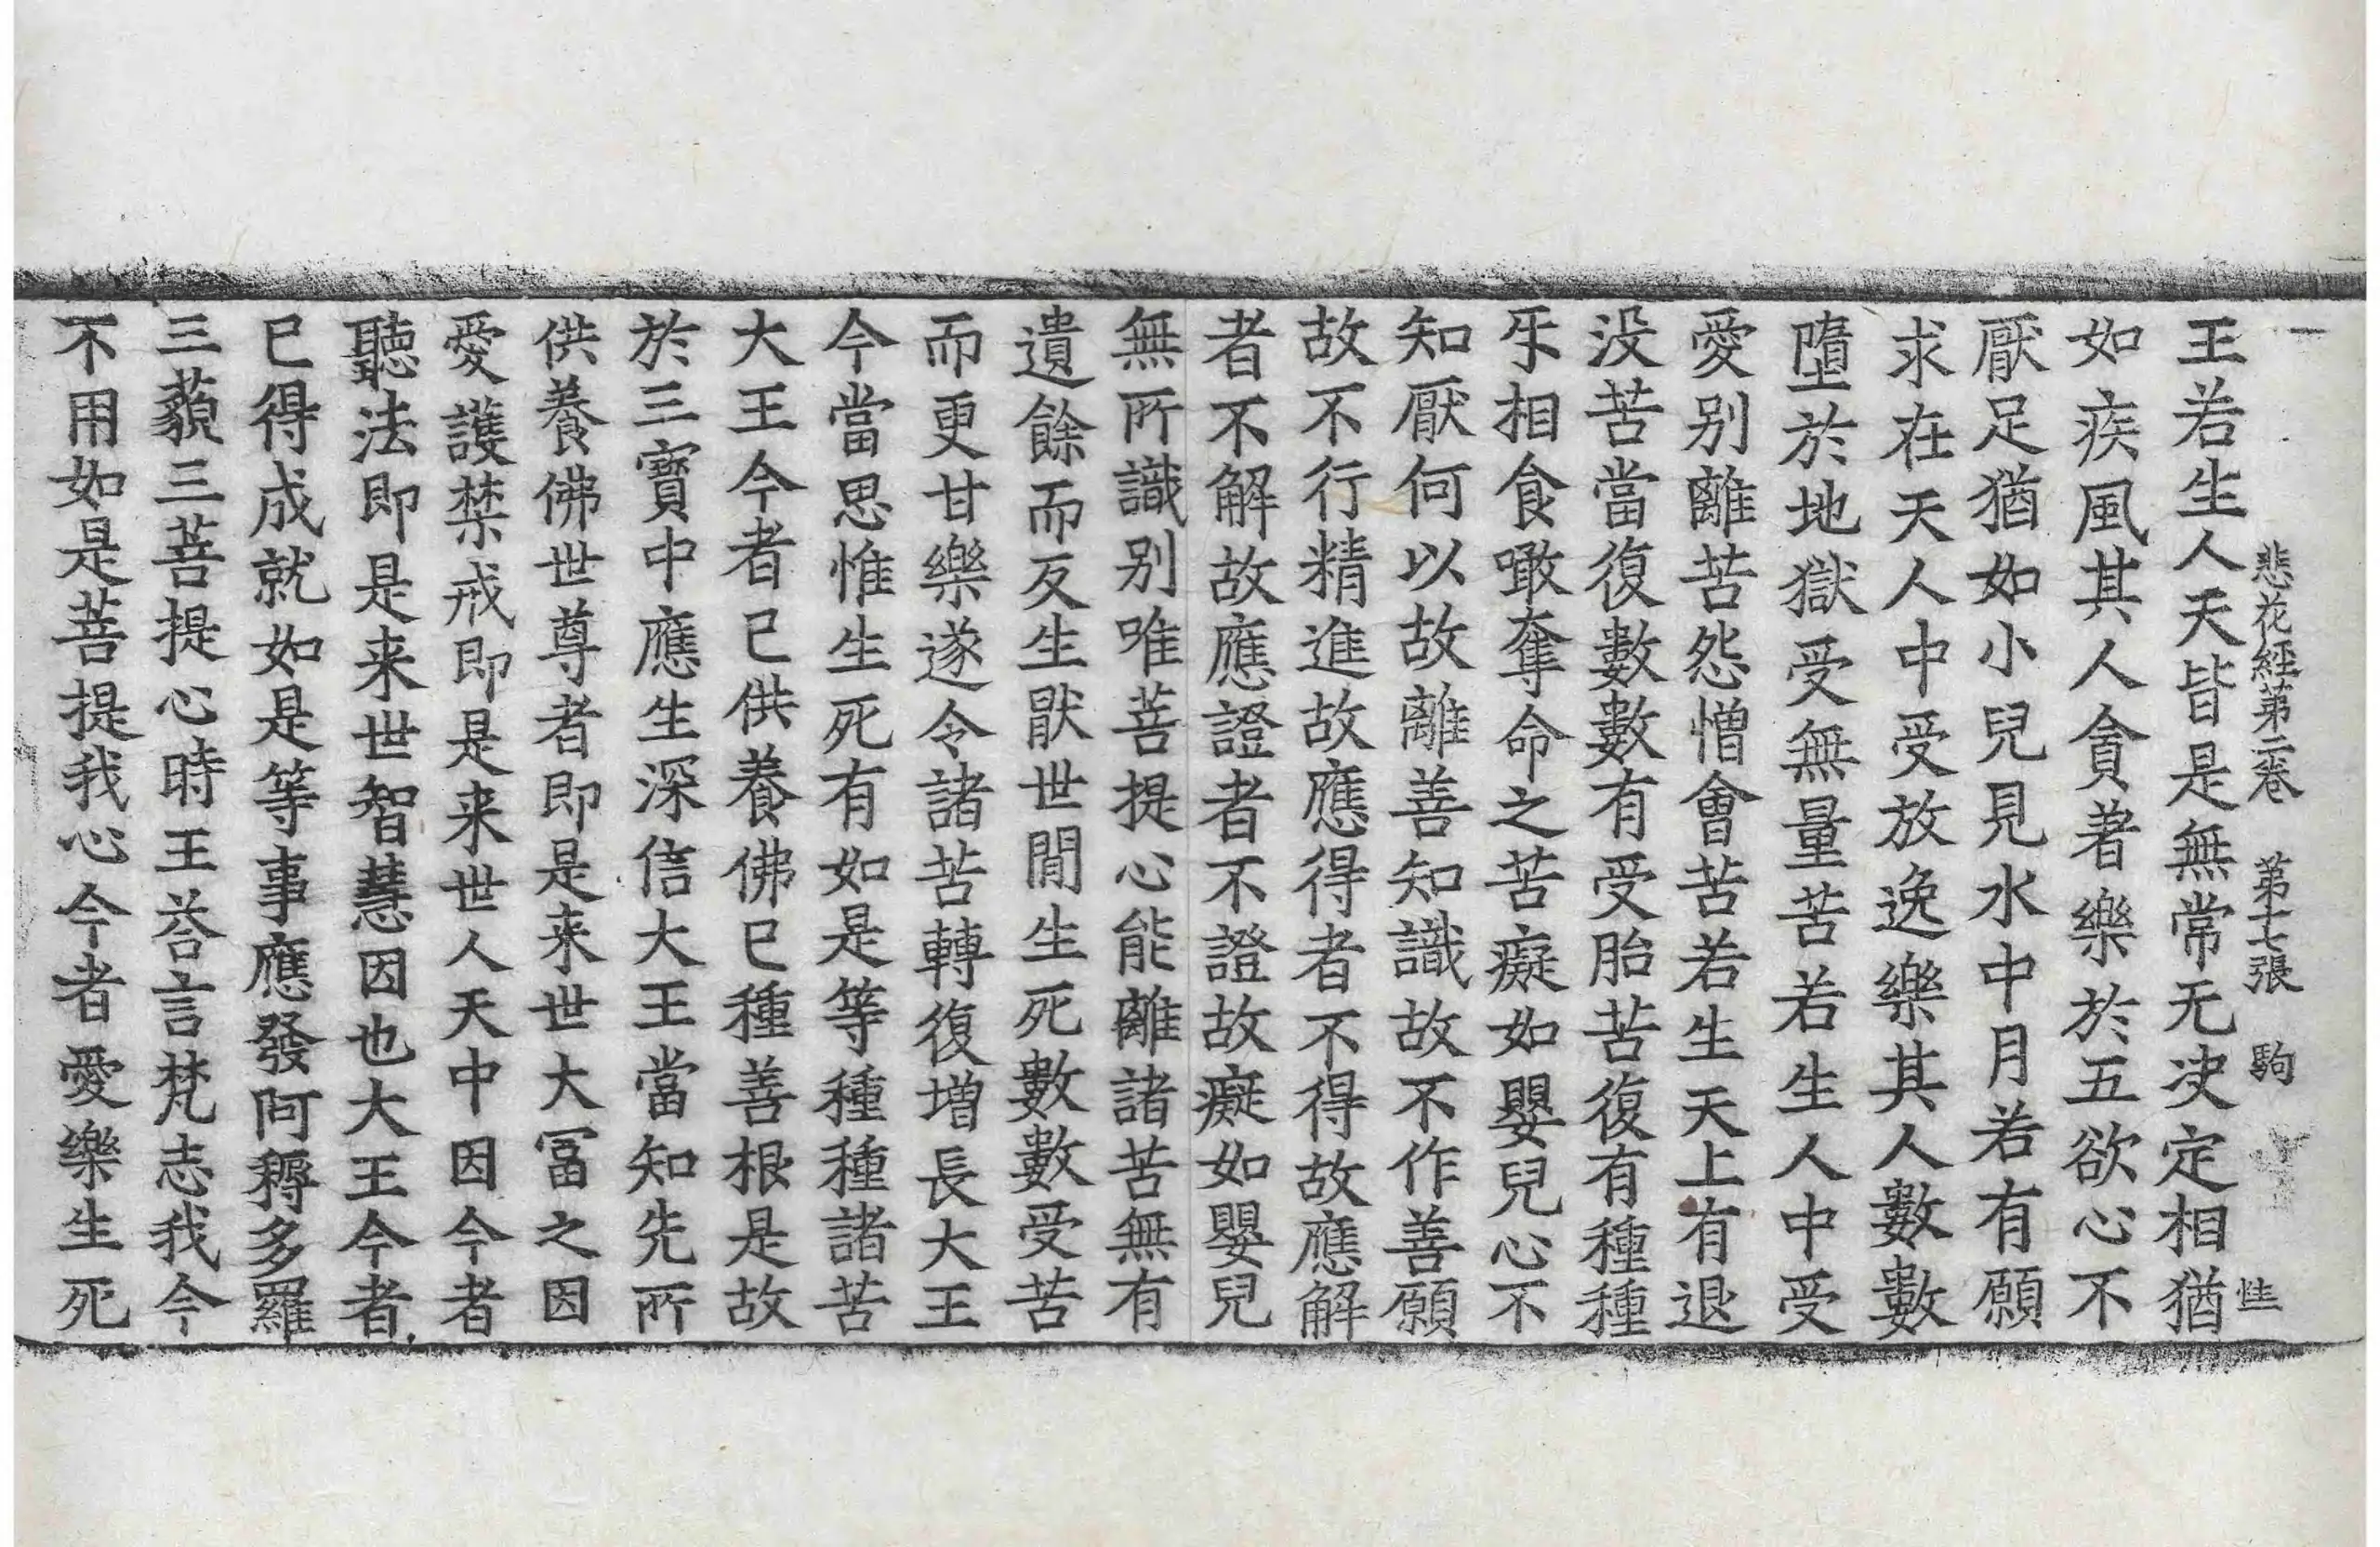 悲花經第二卷 第七張 駒
王若生人天皆是無常无决定相猶
如疾風其人貪著樂於五欲心不
厭足猶如小兒見水中月若有願
求在天人中受放逸樂其人數數
墮於地獄受無量苦若生人中受
愛别離苦怨憎會苦若生天上有退
没苦當復數數有受胎苦復有種種
𤘽相食噉奪命之苦癡如嬰兒心不
知厭何以故離善知識故不作善願
故不行精進故應得者不得故應解
者不解故應證者不證故癡如嬰兒
無所識别唯菩提心能離諸苦無有
遺餘而反生猒世間生死數數受苦
而更甘樂遂令諸苦轉復増長大王
今當思惟生死有如是等種種諸苦
大王今者已供養佛已種善根是故
於三寶中應生深信大王當知先所
供養佛世尊者即是来世大冨之因
愛護禁戒即是来世人天中因今者
聽法即是来世智慧因也大王今者
已得成就如是等事應發阿耨多羅
三藐三菩提心時王荅言梵志我今
不用如是菩提我心今者愛樂生死